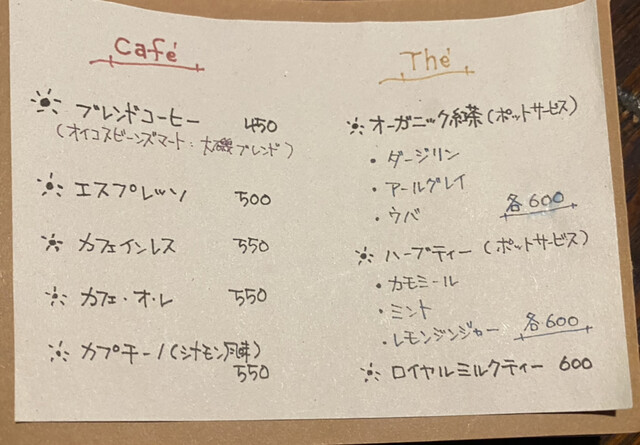 Café
ブレンドコーヒー 450
(オイコスビーンズマート:大磯ブレンド)
エスプレッソ 500
カフェインレス 550
カフェ・オ・レ 550
カプチーノ(シナモン風味)
550
Thé
オーガニック紅茶(ポットサービス)
・ダージリン
・アールグレイ
・ウバ 各600
ハーブティー(ポットサービス)
・カモミール
・ミント
・レモンジンジャー 各600
ロイヤルミルクティー 600